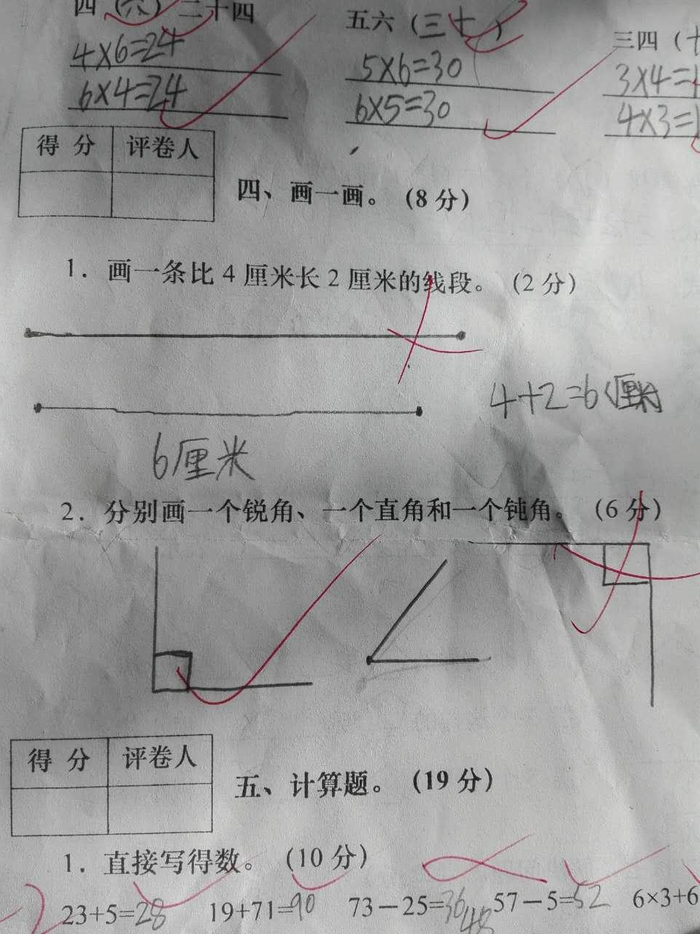 四（六）二十四
五六（三十）
三四（十
4×6=24
5×6=30
3×4=1
6×4=24
6×5=30
4×3=1
得 分 评卷人
四、画一画。（8 分）
1．画一条比 4 厘米长 2 厘米的线段。（2 分）
4+2=6厘米
6厘米
2．分别画一个锐角、一个直角和一个钝角。（6 分）
得 分 评卷人
五、计算题。（19 分）
1．直接写得数。（10 分）
23+5=28 19+71=90 73－25=36 48 57－5=52 6×3+6